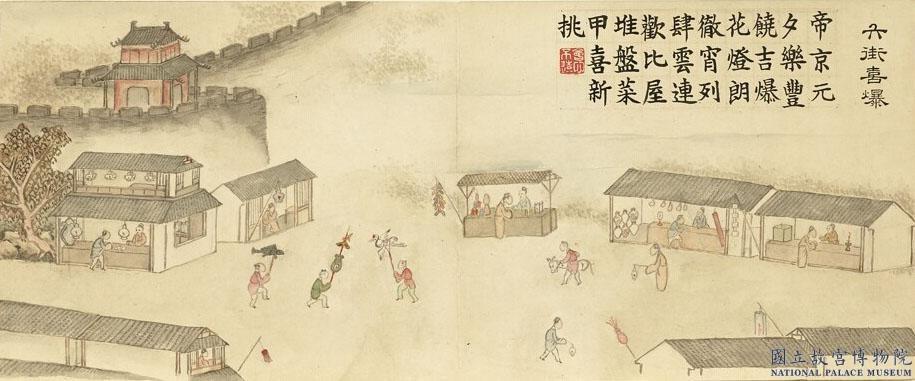 六街喜爆
帝京元
夕樂豐
饒吉爆
花燈朗
徹宵列
肆雲連
歡比屋
堆盤菜
甲喜新
挑
國立故宮博物院
NATIONAL PALACE MUSEUM